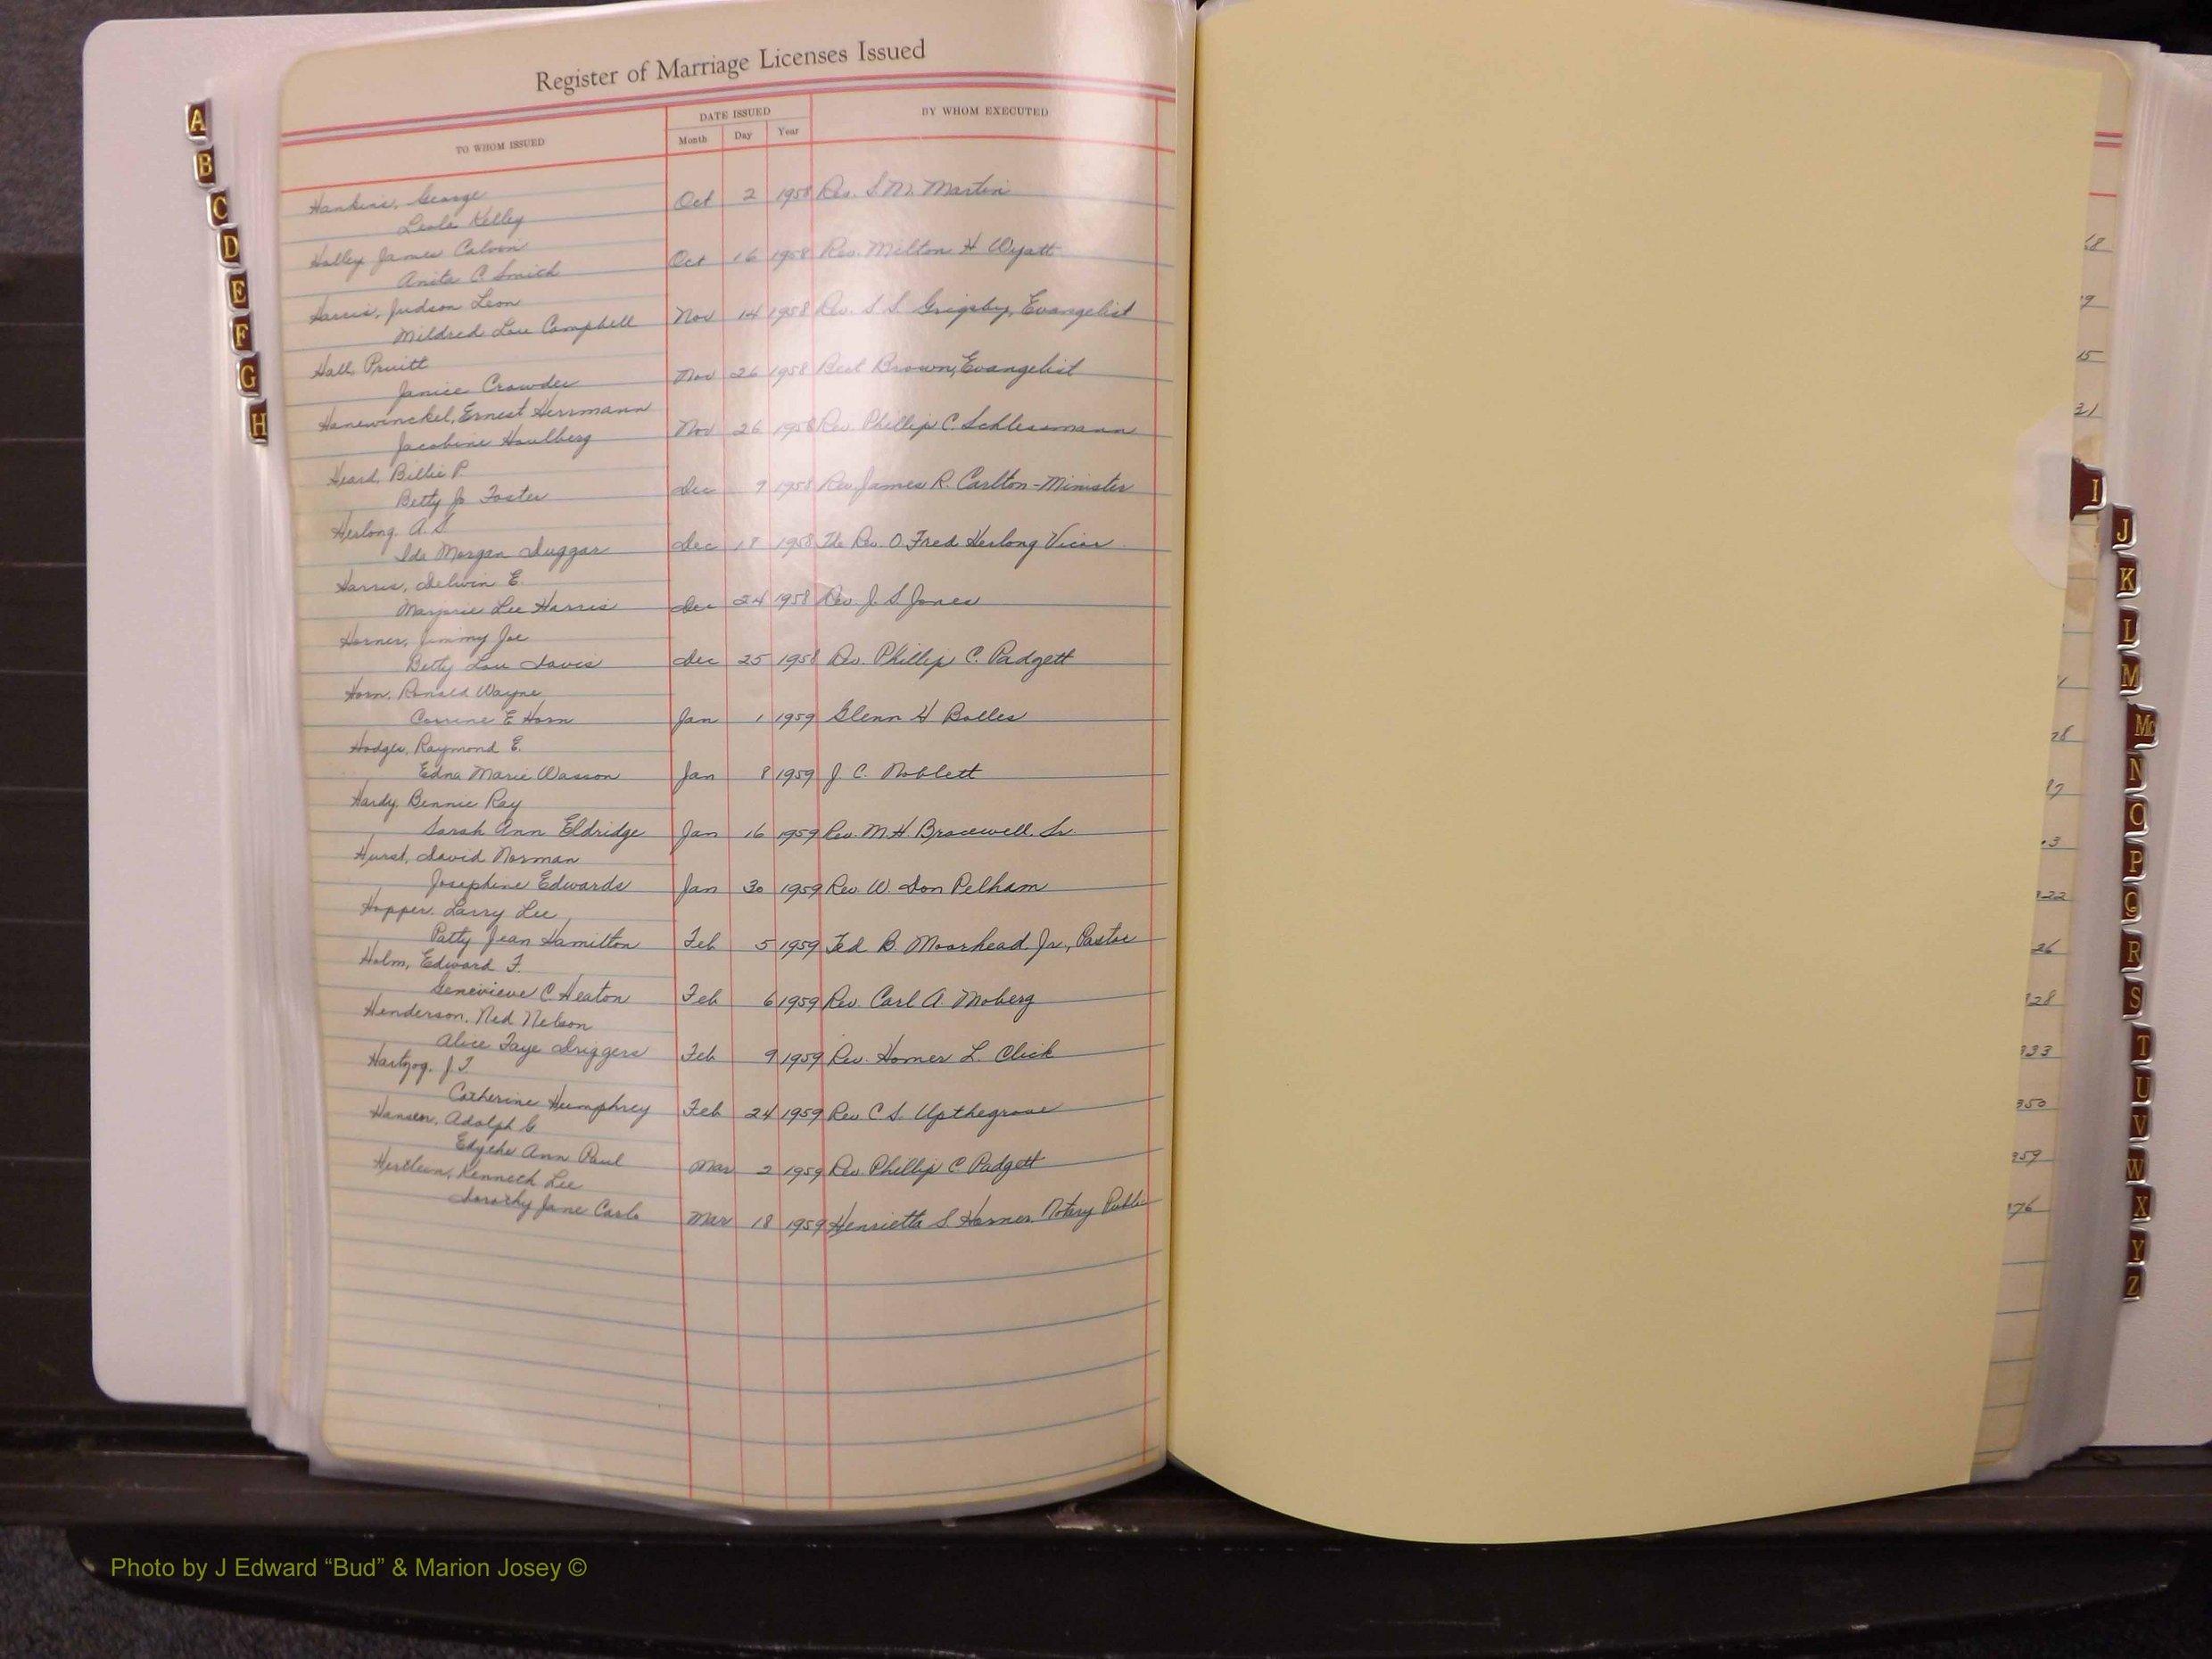 Register of Marriage Licenses Issued
TO WHOM ISSUED
DATE ISSUED
Month Day Year
BY WHOM EXECUTED
Hankins, George
Kelley
Oct 2 1958 Rev. S. M. Martin
Holley James Calvin
Anita C. Smith
Oct 16 1958 Rev. Milton H Wyatt
Harris, Judson Leon
Mildred Lou Campbell
Nov 14 1958 Rev. S. S. Grigsby, Evangelist
Hall, Pruitt
Janice Crowder
Nov 26 1958 Bert Brown, Evangelist
Hanewinckel, Ernest Herrmann
Jacobine Haulberg
Nov 26 1958 Rev. Phillip C. Schlessmann
Heard, Billie P.
Betty Jo Foster
Dec 9 1958 Rev. James R. Carlton - Minister
Herlong. A. S.
Ida Morgan Duggar
Dec 1958 The Rev. O. Fred Herlong Vicar
Harris, Delwin E.
Marjorie Lee Harris
Dec 24 1958 Rev. J. S. Jones
Horner, Jimmy Joe
Betty Lou Davis
Dec 25 1958 Rev. Phillip C. Padgett
Horn. Ronald Wayne
Corrine E Horn
Jan 1 1959 Glenn H Bolles
Hodges, Raymond E.
Edna Marie Wasson
Jan 8 1959 J. C. Noblett
Hardy. Bennie Ray
Sarah Ann Eldridge
Jan 16 1959 Rev. M. H. Bracewell. Sr.
Hurst, David Norman
Josephine Edwards
Jan 30 1959 Rev. W. Don Pelham
Hopper. Larry Lee
Patty Jean Hamilton
Feb 5 1959 Ted. B. Moorhead Jr., Pastor
Holm, Edward F.
Genevieve C. Heaton
Feb 6 1959 Rev. Carl A. Moberg
Henderson. Ned Nelson
Alice Faye Driggers
Feb 9 1959 Rev. Homer L. Click
Hartzog. J. T.
Catherine Humphrey
Feb 24 1959 Rev C. S. Upthegrove
Hansen. Adolph G
Edythe Ann Paul
Mar 2 1959 Rev. Phillip C Padgett
Hertlein, Kenneth Lee
Dorothy Jane Carls
Mar 18 1959 Henrietta S. Horner. Notary Public
A
B
C
D
E
F
G
H
I
J
K
L
M
Mc
N
O
P
Q
R
S
T
U
V
W
X
Y
Z
Photo by J Edward “Bud” & Marion Josey ©